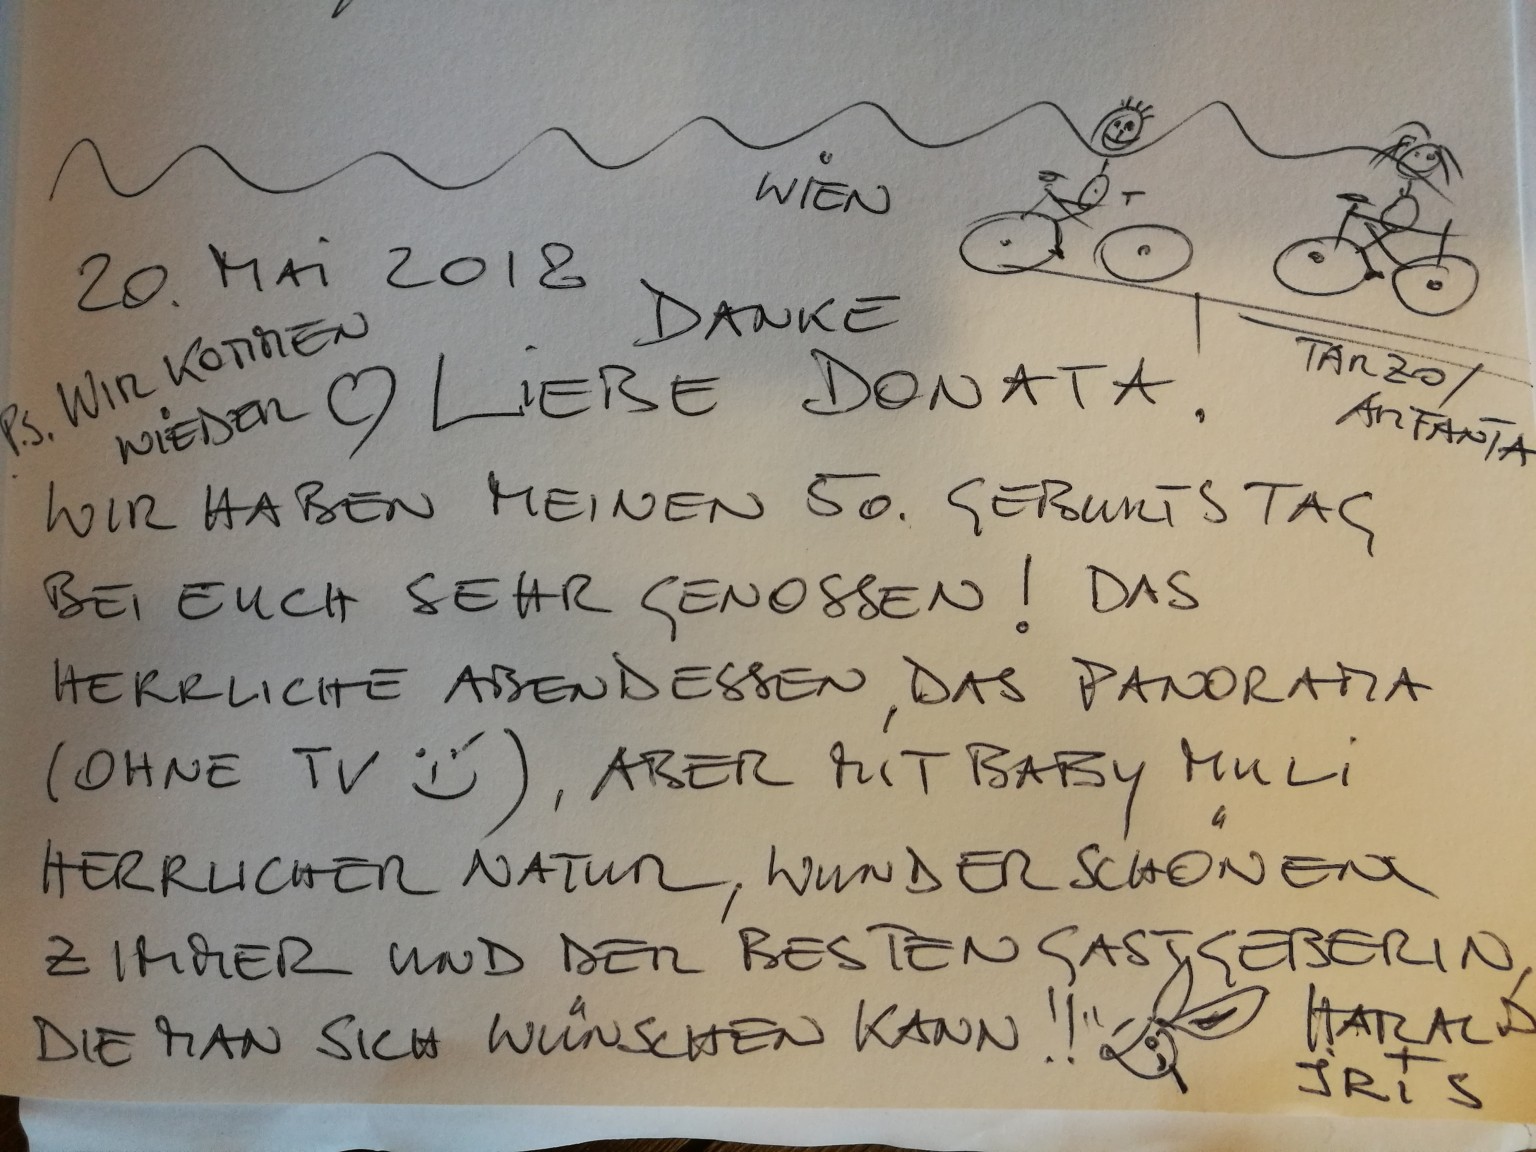 WIEN
20. MAI 2018
DANKE
P.S. WIR KOMMEN
WIEDER
LIEBE DONATA.
TARZO/
ARFANTA
WIR HABEN MEINEN 50. GEBURTSTAG
BEI EUCH SEHR GENOSSEN! DAS
HERRLICHE ABENDESSEN, DAS PANORAMA
(OHNE TV), ABER MIT BABY MULI
HERRLICHER NATUR, WUNDERSCHÖNEN
ZIMMER UND DER BESTEN GASTGEBERIN,
DIE MAN SICH WÜNSCHEN KANN!!
HARALD
+
IRIS